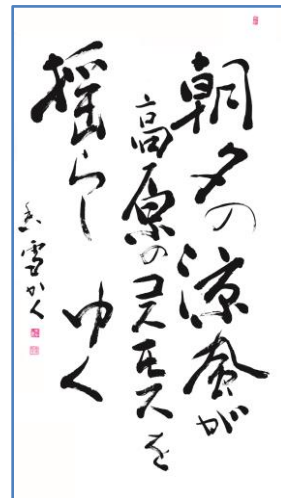 朝夕の涼風が
高原のコスモスを
揺らし ゆく
雪かく